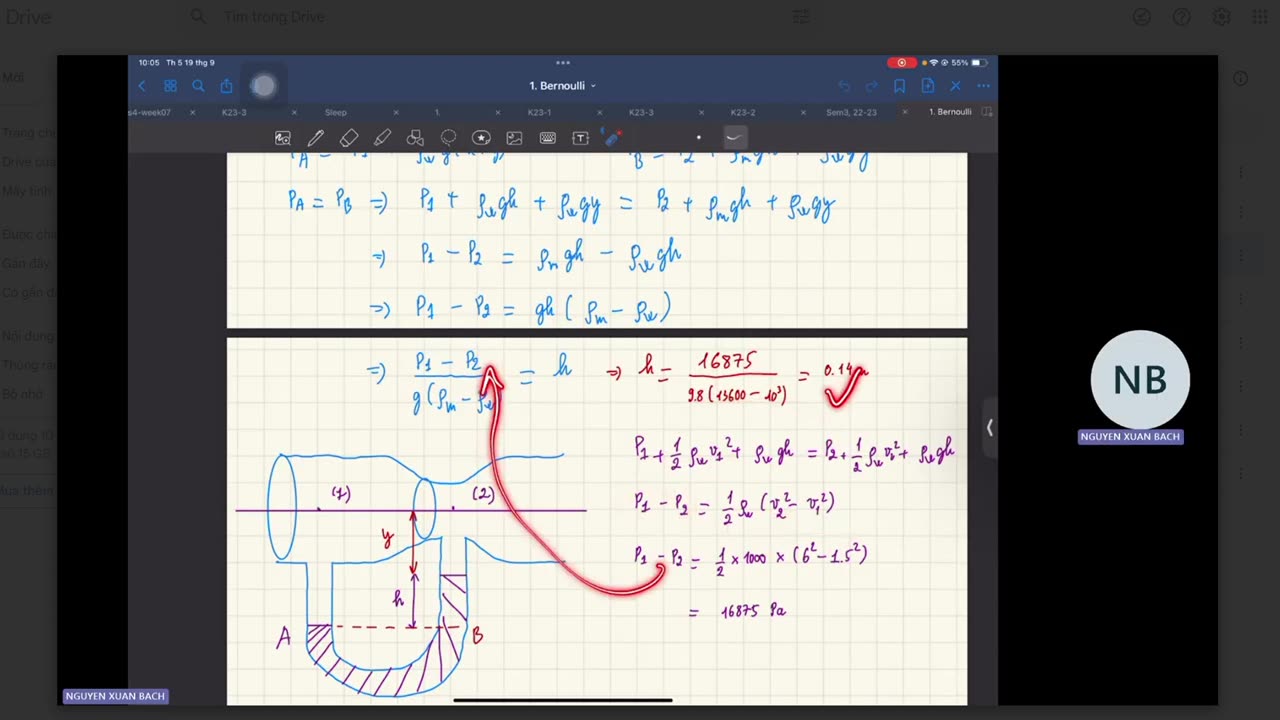 Drive
Tìm trong Drive
Mới
Trang ch
Drive của
Máy tính
Được chi
Gần đây
Có gắn d
Nội dung
Thùng rá
Bộ nhớ
Mua thêm
10:05 Th 5 19 thg 9
55%
1. Bernoulli
s4-week07
K23-3
Sleep
1.
K23-1
K23-3
K23-2
Sem3, 22-23
1. Bernoulli
P_A = P_B ⇒ P₁ + ρ_w gh + ρ_w gy = P₂ + ρ_m gh + ρ_w gy
⇒ P₁ − P₂ = ρ_m gh − ρ_w gh
⇒ P₁ − P₂ = gh ( ρ_m − ρ_w )
⇒ (P₁ − P₂) / g(ρ_m − ρ_w = h ⇒ h = 16875 / 9.8(13600 − 10³) = 0.14
P₁ + ½ ρ_w v₁² + ρ_w gh = P₂ + ½ ρ_w v₂² + ρ_w gh
(1)
(2)
P₁ − P₂ = ½ ρ_w (v₂² − v₁²)
y
P₁ − P₂ = ½ × 1000 × (6² − 1.5²)
h
= 16875 Pa
A
B
NB
NGUYEN XUAN BACH
NGUYEN XUAN BACH